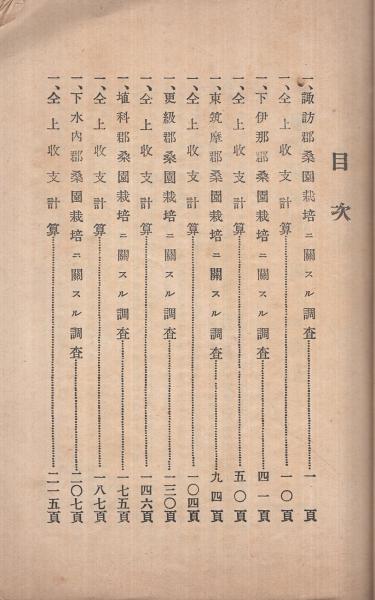 目次
一、諏訪郡桑園栽培ニ關スル調査……一頁
一、仝上收支計算……一〇頁
一、下伊那郡桑園栽培ニ關スル調査……四一頁
一、仝上收支計算……五〇頁
一、東筑摩郡桑園栽培ニ關スル調査……九四頁
一、仝上收支計算……一〇四頁
一、更級郡桑園栽培ニ關スル調査……一三〇頁
一、仝上收支計算……一四六頁
一、埴科郡桑園栽培ニ關スル調査……一七五頁
一、仝上收支計算……一八七頁
一、下水內郡桑園栽培ニ關スル調査……二〇七頁
一、仝上收支計算……二一五頁